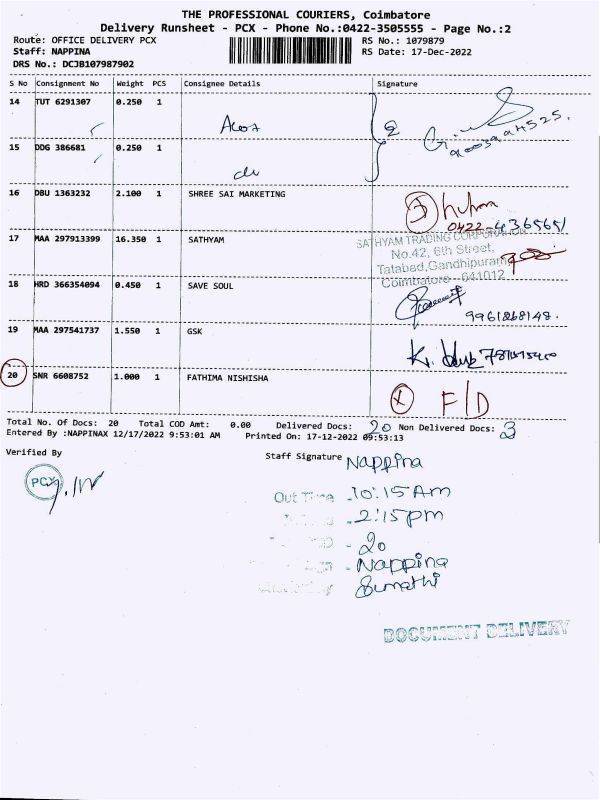 THE PROFESSIONAL COURIERS, Coimbatore
Delivery Runsheet - PCX - Phone No.:0422-3505555 - Page No.:2
Route: OFFICE DELIVERY PCX RS No.: 1079879
Staff: NAPPINA RS Date: 17-Dec-2022
DRS No.: DCJB107987902
S No Consignment No Weight PCS Consignee Details Signature
14 TUT 6291307 0.250 1
15 DDG 386681 0.250 1
16 DBU 1363232 2.100 1 SHREE SAI MARKETING
17 MAA 297913399 16.350 1 SATHYAM
SATHYAM TRADING CORPORATION
No.42, 6th Street,
Tatabad, Gandhipuram
Coimbatore - 641012
18 HRD 366354094 0.450 1 SAVE SOUL
19 MAA 297541737 1.550 1 GSK
20 SNR 6608752 1.000 1 FATHIMA NISHISHA
F/D
Total No. Of Docs: 20 Total COD Amt: 0.00 Delivered Docs: 20 Non Delivered Docs: 3
Entered By :NAPPINAX 12/17/2022 9:53:01 AM Printed On: 17-12-2022 09:53:13
Verified By Staff Signature Nappina
PCX
Out Time - 10:15 Am
- 2:15 pm
- 20
- Nappina
Sumathi
DOCUMENT DELIVERY